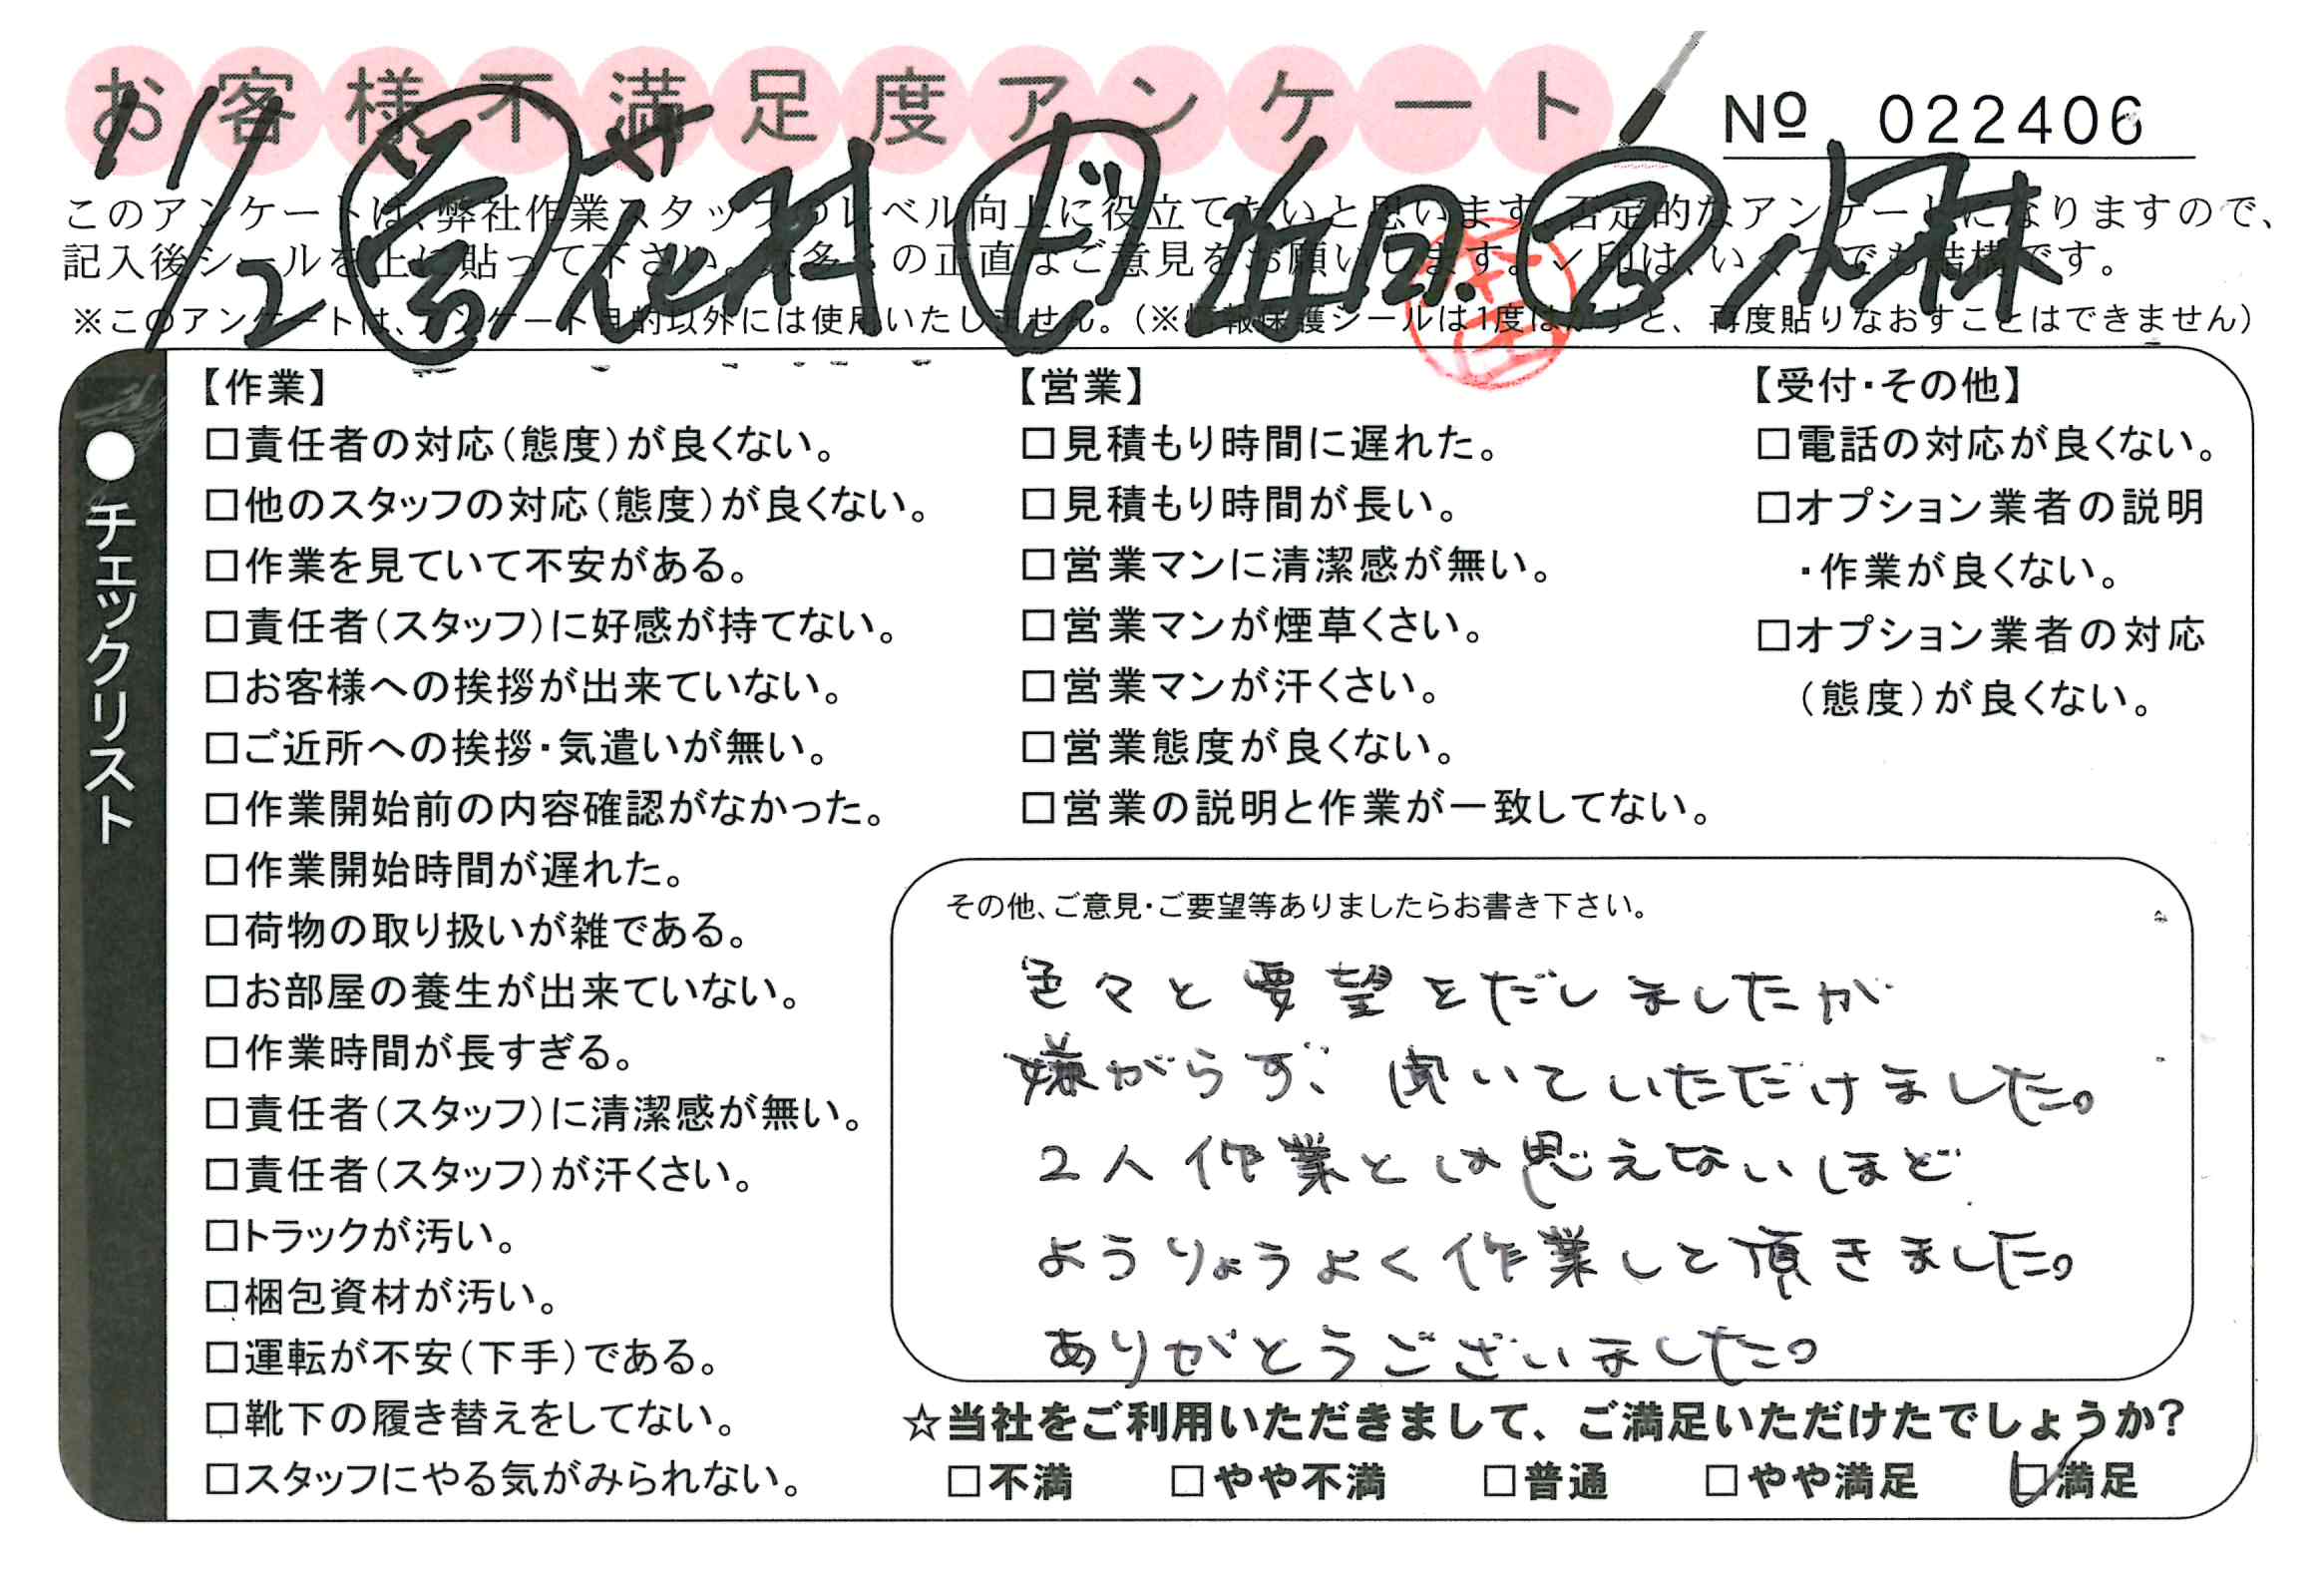 お客様不満足度アンケート
№ 022406
11/2 営 志村 ド 作田 ア 小林
このアンケートは、弊社作業スタッフのレベル向上に役立てたいと思います。否定的なアンケートになりますので、
記入後シールを上に貼って下さい。数多くの正直なご意見をお願いします。✓印は、いくつでも結構です。
※このアンケートは、アンケート目的以外には使用いたしません。(※情報保護シールは1度はがすと、再度貼りなおすことはできません)
●チェックリスト
【作業】
□責任者の対応(態度)が良くない。
□他のスタッフの対応(態度)が良くない。
□作業を見ていて不安がある。
□責任者(スタッフ)に好感が持てない。
□お客様への挨拶が出来ていない。
□ご近所への挨拶・気遣いが無い。
□作業開始前の内容確認がなかった。
□作業開始時間が遅れた。
□荷物の取り扱いが雑である。
□お部屋の養生が出来ていない。
□作業時間が長すぎる。
□責任者(スタッフ)に清潔感が無い。
□責任者(スタッフ)が汗くさい。
□トラックが汚い。
□梱包資材が汚い。
□運転が不安(下手)である。
□靴下の履き替えをしてない。
□スタッフにやる気がみられない。
【営業】
□見積もり時間に遅れた。
□見積もり時間が長い。
□営業マンに清潔感が無い。
□営業マンが煙草くさい。
□営業マンが汗くさい。
□営業態度が良くない。
□営業の説明と作業が一致してない。
【受付・その他】
□電話の対応が良くない。
□オプション業者の説明
・作業が良くない。
□オプション業者の対応
(態度)が良くない。
その他、ご意見・ご要望等ありましたらお書き下さい。
色々と要望をだしましたが
嫌がらず、聞いていただけました。
2人作業とは思えないほど
ようりょうよく作業して頂きました。
ありがとうございました。
☆当社をご利用いただきまして、ご満足いただけたでしょうか?
□不満 □やや不満 □普通 □やや満足 ☑満足